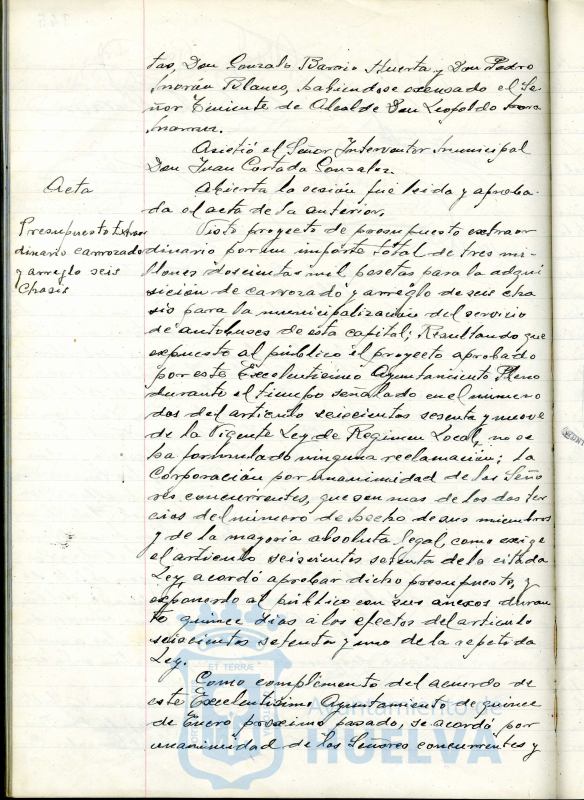 tas, Don Gonzalo Barrio Huerta y Don Pedro
Morán Blanco, habiéndose excusado el Se-
ñor Teniente de Alcalde Don Leopoldo Mora

Asistió el Señor Interventor municipal
Don Juan Cortada Gonzalez.
Acta
Abierta la sesión fué leida y aproba-
da el acta de la anterior.
Presupuesto Extraor
dinario carrozado
y arreglo seis
Chasis
Visto proyecto de presupuesto extraor
dinario por un importe total de tres mi-
llones doscientas mil pesetas para la adqui
sición de carrozado y arreglo de seis cha
sis para la municipalización del servicio
de autobuses de esta capital; Resultando que
expuesto al público el proyecto aprobado
por este Excelentísimo Ayuntamiento Pleno
durante el tiempo señalado en el número
dos del articulo seiscientos sesenta y nueve
de la Vigente Ley de Regimen Local, no se
ha formulado ninguna reclamación; la
Corporación por unanimidad de los Seño
res concurrentes, que son mas de los dos ter
cios del número de hecho de sus miembros
y de la mayoria absoluta legal, como exige
el articulo seiscientos setenta de la citada
Ley, acordó aprobar dicho presupuesto, y
exponerlo al público con sus anexos duran
te quince dias á los efectos del articulo
seiscientos setenta y uno de la repetida
Ley.
Como complemento del acuerdo de
este Excelentísimo Ayuntamiento de quince
de Enero próximo pasado, se acordó por
unanimidad de los Señores concurrentes y
ET TERRÆ
Ayuntamiento de
HUELVA